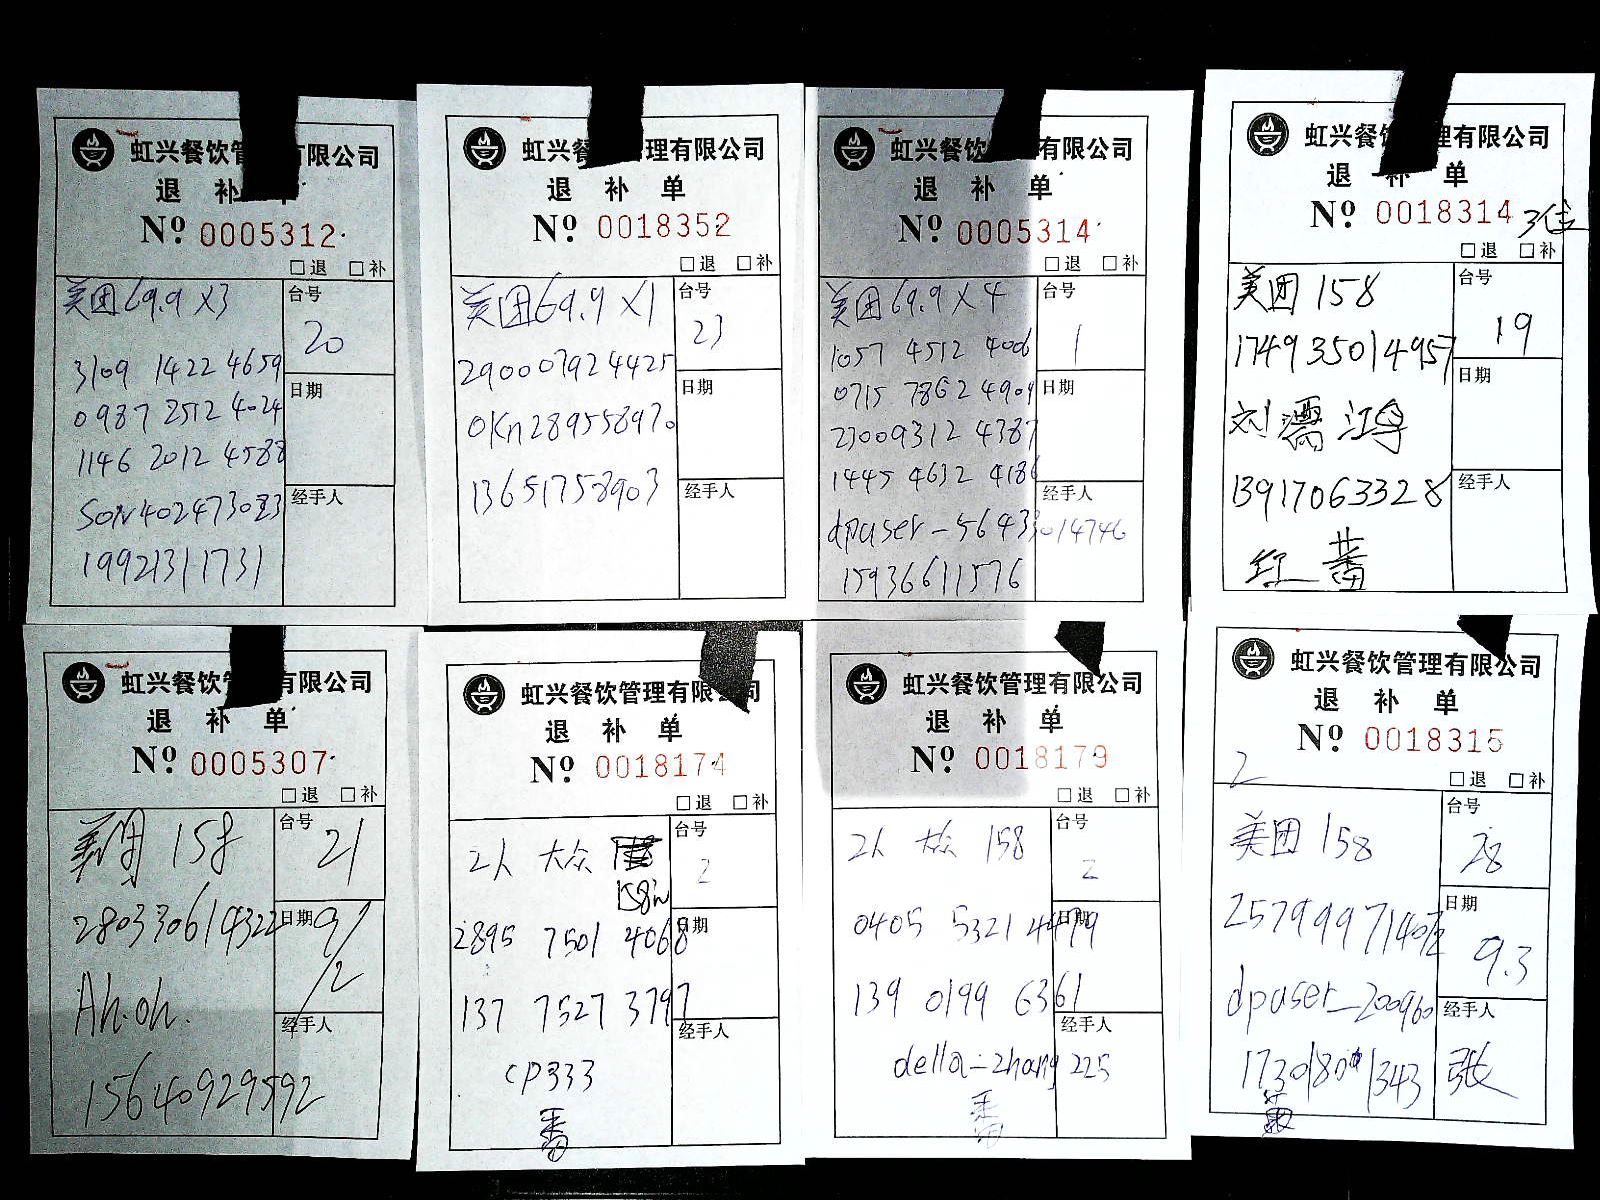 虹兴餐饮管 有限公司
退 补 单
№ 0005312
□退 □补
美团69.9 X3
台号
20
3109 1422 4659
0987 2512 4024
日期
1146 2012 4588
经手人
19921311731
虹兴餐 理有限公司
退 补 单
№ 0018352
□退 □补
美团69.9 X1
台号
23
290007924425
日期
0Kn289558970
13651758903
经手人
虹兴餐饮 有限公司
退 补 单
№ 0005314
□退 □补
美团69.9 X 4
台号
1
1057 4512 4006
0715 7862 4909
日期
23009312 4387
1445 4632 4186
经手人
dpuser-56433014746
15936611576
虹兴餐饮 理有限公司
退 补 单
№ 0018314 3位
□退 □补
美团 158
台号
19
1749 3501 4957
日期
刘濡江
13917063328
经手人
红 番
虹兴餐饮 有限公司
退 补 单
№ 0005307
□退 □补
美团 158
台号
21
280330614322
日期
9/2
Ah.oh.
经手人
15640929592
虹兴餐饮管理有限公司
退 补 单
№ 0018174
□退 □补
2人 大众
158
台号
2
2895 7501 4068
日期
137 7527 3797
经手人
cp333
番
虹兴餐饮管理有限公司
退 补 单
№ 0018179
□退 □补
2人 大众 158
台号
2
0405 5321 4479
日期
139 0199 6361
经手人
della-zhang 225
虹兴餐饮管理有限公司
退 补 单
№ 0018315
2
□退 □补
美团 158
台号
28
日期
9.3
dpuser_200960
经手人
张